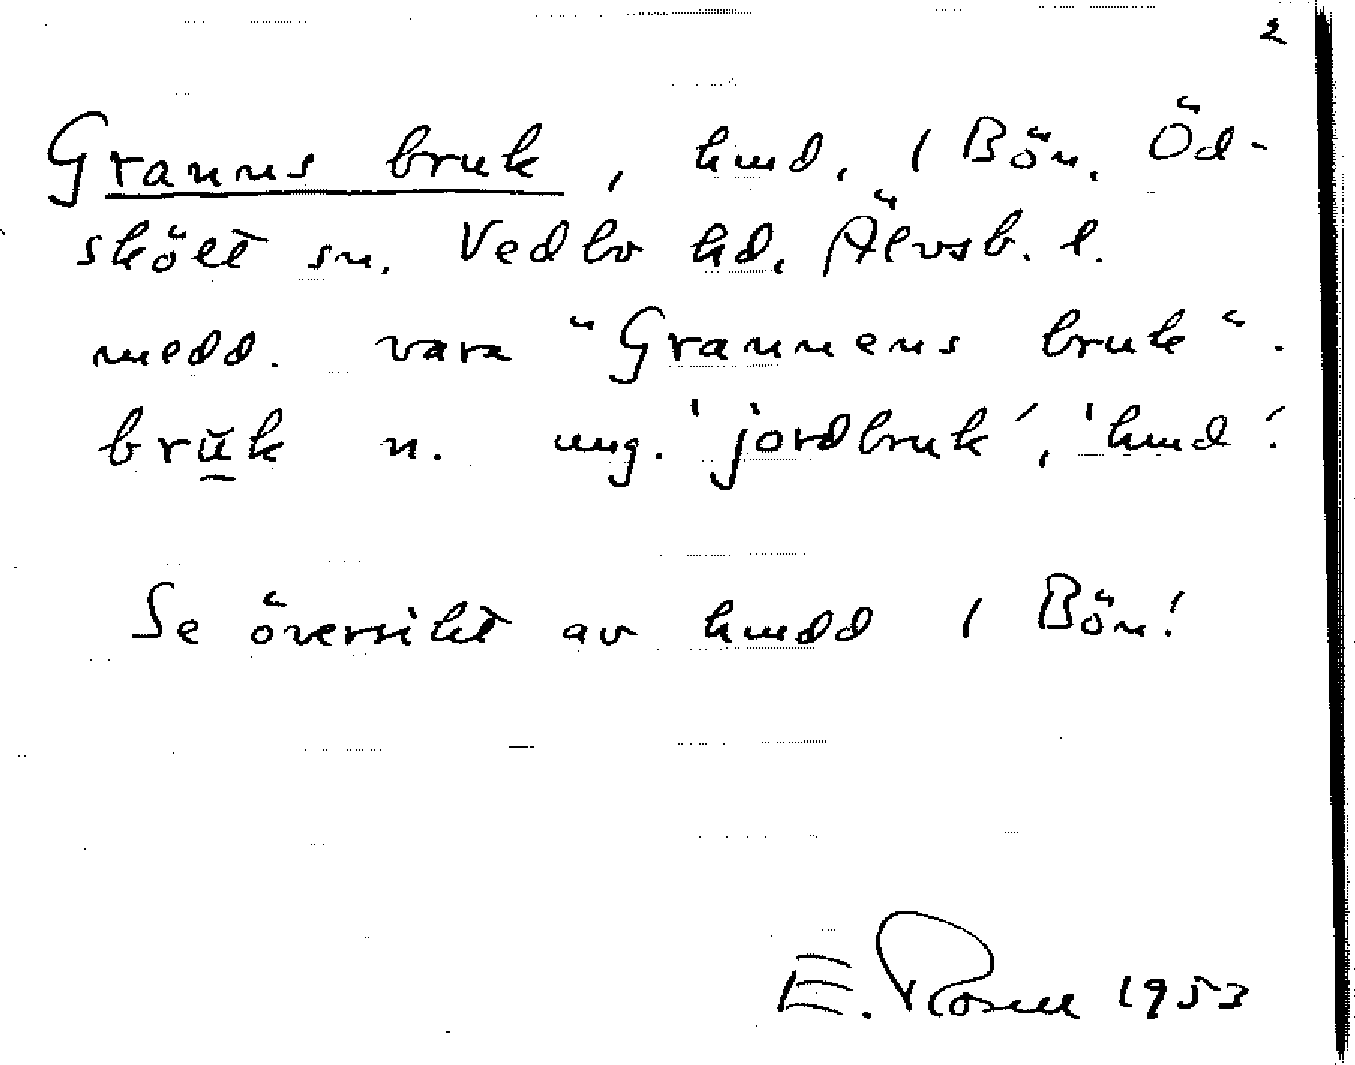 2
Granns bruk, hmd. i Bön. Öd-
skölt sn. Vedbo hd. Älvsb. l.
medd. vara "Grannens bruk".
brŭk n. ung. 'jordbruk', 'hmd'.
Se översikt av hmdd i Bön!
E. Rosell 1953